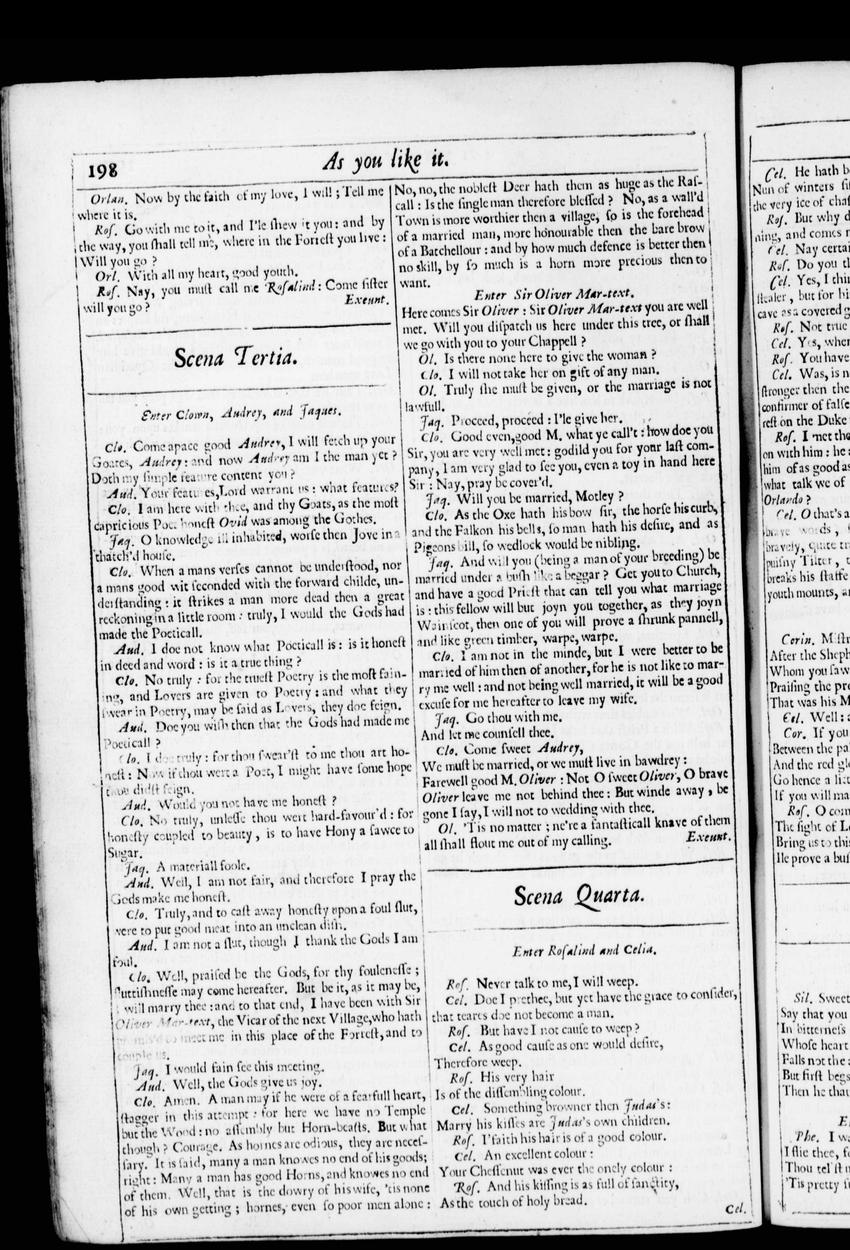 198
As you like it.
Orlan. Now by the faith of my love, I will; Tell me
where it is.
Roſ. Go with me to it, and I'le ſhew it you: and by
the way, you ſhall tell me, where in the Forreſt you live:
Will you go?
Orl. With all my heart, good youth.
Roſ. Nay, you muſt call me Roſalind: Come ſiſter
will you go? Exeunt.
Scena Tertia.
Enter Clown, Audrey, and Jaques.
Clo. Come apace good Audrey, I will fetch up your
Goates, Audrey: and now Audrey am I the man yet?
Doth my ſimple feature content you?
Aud. Your features, Lord warrant us: what features?
Clo. I am here with thee, and thy Goats, as the moſt
capricious Poet honeſt Ovid was among the Gothes.
Jaq. O knowledge ill inhabited, worſe then Jove in a
thatch'd houſe.
Clo. When a mans verſes cannot be underſtood, nor
a mans good wit ſeconded with the forward childe, un-
derſtanding: it ſtrikes a man more dead then a great
reckoning in a little room: truly, I would the Gods had
made the Poeticall.
Aud. I doe not know what Poeticall is: is it honeſt
in deed and word: is it a true thing?
Clo. No truly: for the trueſt Poetry is the moſt fain-
ing, and Lovers are given to Poetry: and what they
ſwear in Poetry, may be ſaid as Lovers, they doe feign.
Aud. Doe you wiſh then that the Gods had made me
Poeticall?
Clo. I doe truly: for thou ſwear'ſt to me thou art ho-
neſt: Now if thou wert a Poet, I might have ſome hope
thou didſt feign.
Aud. Would you not have me honeſt?
Clo. No truly, unleſſe thou wert hard-favour'd: for
honeſty coupled to beauty, is to have Hony a ſawce to
Sugar.
Jaq. A materiall foole.
Aud. Well, I am not fair, and therefore I pray the
Gods make me honeſt.
Clo. Truly, and to caſt away honeſty upon a foul ſlut,
were to put good meat into an unclean diſh.
Aud. I am not a ſlut, though I thank the Gods I am
foul.
Clo. Well, praiſed be the Gods, for thy fouleneſſe;
ſluttiſhneſſe may come hereafter. But be it, as it may be,
I will marry thee: and to that end, I have been with Sir
Oliver Mar-text, the Vicar of the next Village, who hath
promis'd to meet me in this place of the Forreſt, and to
couple us.
Jaq. I would fain ſee this meeting.
Aud. Well, the Gods give us joy.
Clo. Amen. A man may if he were of a fearfull heart,
ſtagger in this attempt: for here we have no Temple
but the Wood: no aſſembly but Horn-beaſts. But what
though? Courage. As hornes are odious, they are neceſ-
ſary. It is ſaid, many a man knowes no end of his goods;
right: Many a man has good Horns, and knowes no end
of them. Well, that is the dowry of his wife, 'tis none
of his own getting; hornes, even ſo poor men alone:
No, no, the nobleſt Deer hath them as huge as the Raſ-
call: Is the ſingle man therefore bleſſed? No, as a wall'd
Town is more worthier then a village, ſo is the forehead
of a married man, more honourable then the bare brow
of a Batchellour: and by how much defence is better then
no skill, by ſo much is a horn more precious then to
want.
Enter Sir Oliver Mar-text.
Here comes Sir Oliver: Sir Oliver Mar-text you are well
met. Will you diſpatch us here under this tree, or ſhall
we go with you to your Chappell?
Ol. Is there none here to give the woman?
Clo. I will not take her on gift of any man.
Ol. Truly ſhe muſt be given, or the marriage is not
lawfull.
Jaq. Proceed, proceed: I'le give her.
Clo. Good even, good M. what ye call't: how doe you
Sir, you are very well met: godild you for your laſt com-
pany, I am very glad to ſee you, even a toy in hand here
Sir: Nay, pray be cover'd.
Jaq. Will you be married, Motley?
Clo. As the Oxe hath his bow ſir, the horſe his curb,
and the Falkon his bells, ſo man hath his deſire, and as
Pigeons bill, ſo wedlock would be nibling.
Jaq. And will you (being a man of your breeding) be
married under a buſh like a beggar? Get you to Church,
and have a good Prieſt that can tell you what marriage
is: this fellow will but joyn you together, as they joyn
Wainſcot, then one of you will prove a ſhrunk pannell,
and like green timber, warpe, warpe.
Clo. I am not in the minde, but I were better to be
married of him then of another, for he is not like to mar-
ry me well: and not being well married, it will be a good
excuſe for me hereafter to leave my wife.
Jaq. Go thou with me.
And let me counſell thee.
Clo. Come ſweet Audrey,
We muſt be married, or we muſt live in bawdrey:
Farewell good M. Oliver: Not O ſweet Oliver, O brave
Oliver leave me not behind thee: But winde away, be
gone I ſay, I will not to wedding with thee.
Ol. 'Tis no matter; ne're a fantaſticall knave of them
all ſhall flout me out of my calling. Exeunt.
Scena Quarta.
Enter Roſalind and Celia.
Roſ. Never talk to me, I will weep.
Cel. Doe I prethee, but yet have the grace to conſider,
that teares doe not become a man.
Roſ. But have I not cauſe to weep?
Cel. As good cauſe as one would deſire,
Therefore weep.
Roſ. His very hair
Is of the diſſembling colour.
Cel. Something browner then Judas's:
Marry his kiſſes are Judas's own children.
Roſ. I'faith his hair is of a good colour.
Cel. An excellent colour:
Your Cheſſenut was ever the onely colour:
Roſ. And his kiſſing is as full of ſanctity,
As the touch of holy bread.
Cel.
Cel. He hath b
Nun of winters
the very ice of
Roſ. But why d
ning, and comes
Cel. Nay certai
Roſ. Do you t
Cel. Yes, I thi
ſtealer, but for hi
cave as a covered g
Roſ. Not true
Cel. Yes, when
Roſ. You have
Cel. Was, is n
ſtronger then the
confirmer of falſe
reſt on the Duke
Roſ. I met the
on with him: he
him of as good as
what talk we of
Orlando?
Cel. O that's a
brave words,
bravely, quite
puiſny Tilter, t
breaks his ſtaffe
youth mounts,
Corin. Miſtr
After the Sheph
Whom you ſaw
Praiſing the pro
That was his M
Cel. Well:
Cor. If you
Between the pa
And the red glo
Go hence a litt
If you will ma
Roſ. O com
The ſight of Lo
Bring us to this
Ile prove a buſ
Sil. Sweet
Say that you
In bitterneſs
Whoſe heart
Falls not the
But firſt begs
Then he that
Phe. I w
I flie thee, f
Thou tel'ſt
'Tis pretty